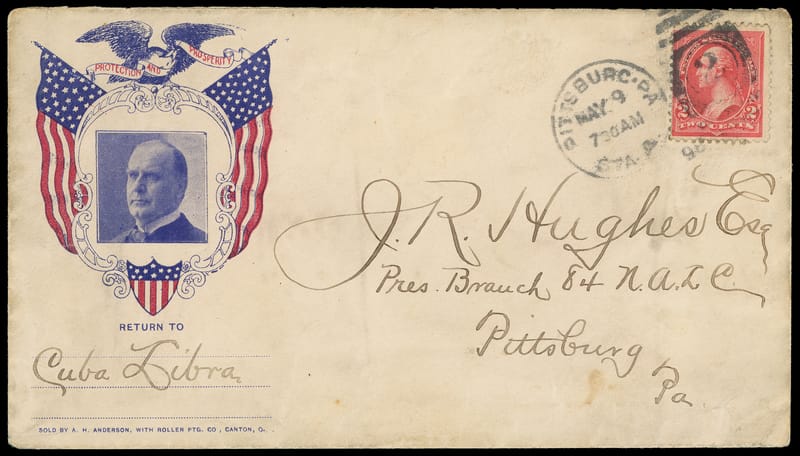 PROTECTION AND PROSPERITY
RETURN TO
Cuba Libra
SOLD BY A. H. ANDERSON, WITH ROLLER PTG. CO., CANTON, O.
PITTSBURG, PA.
MAY 9
730AM
STA. A
98
2 TWO CENTS 2
J. R. Hughes Esq
Pres. Branch 84 N. A. L. C.
Pittsburg
Pa.